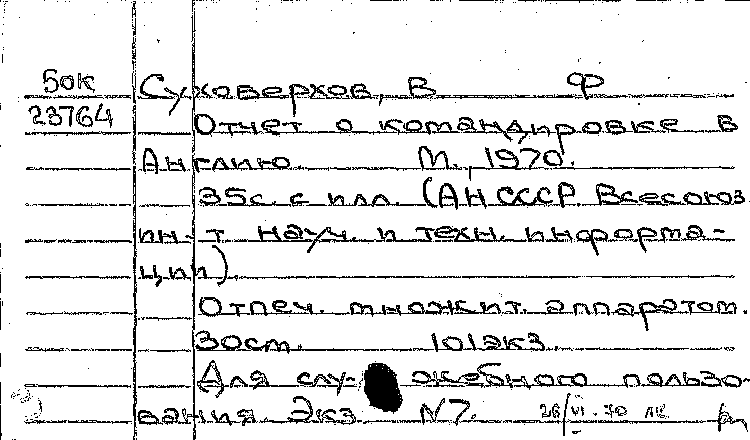 50к Суховерхов, В Ф
23764 Отчет о командировке в
Англию. М., 1970.
35с. с илл. (АН СССР. Всесоюз.
ин-т науч. и техн. информа-
ции).
Отпеч. множит. аппаратом.
30см. 101экз.
Для слу- жебного пользо-
вания. Экз. N7. 26/VI-70